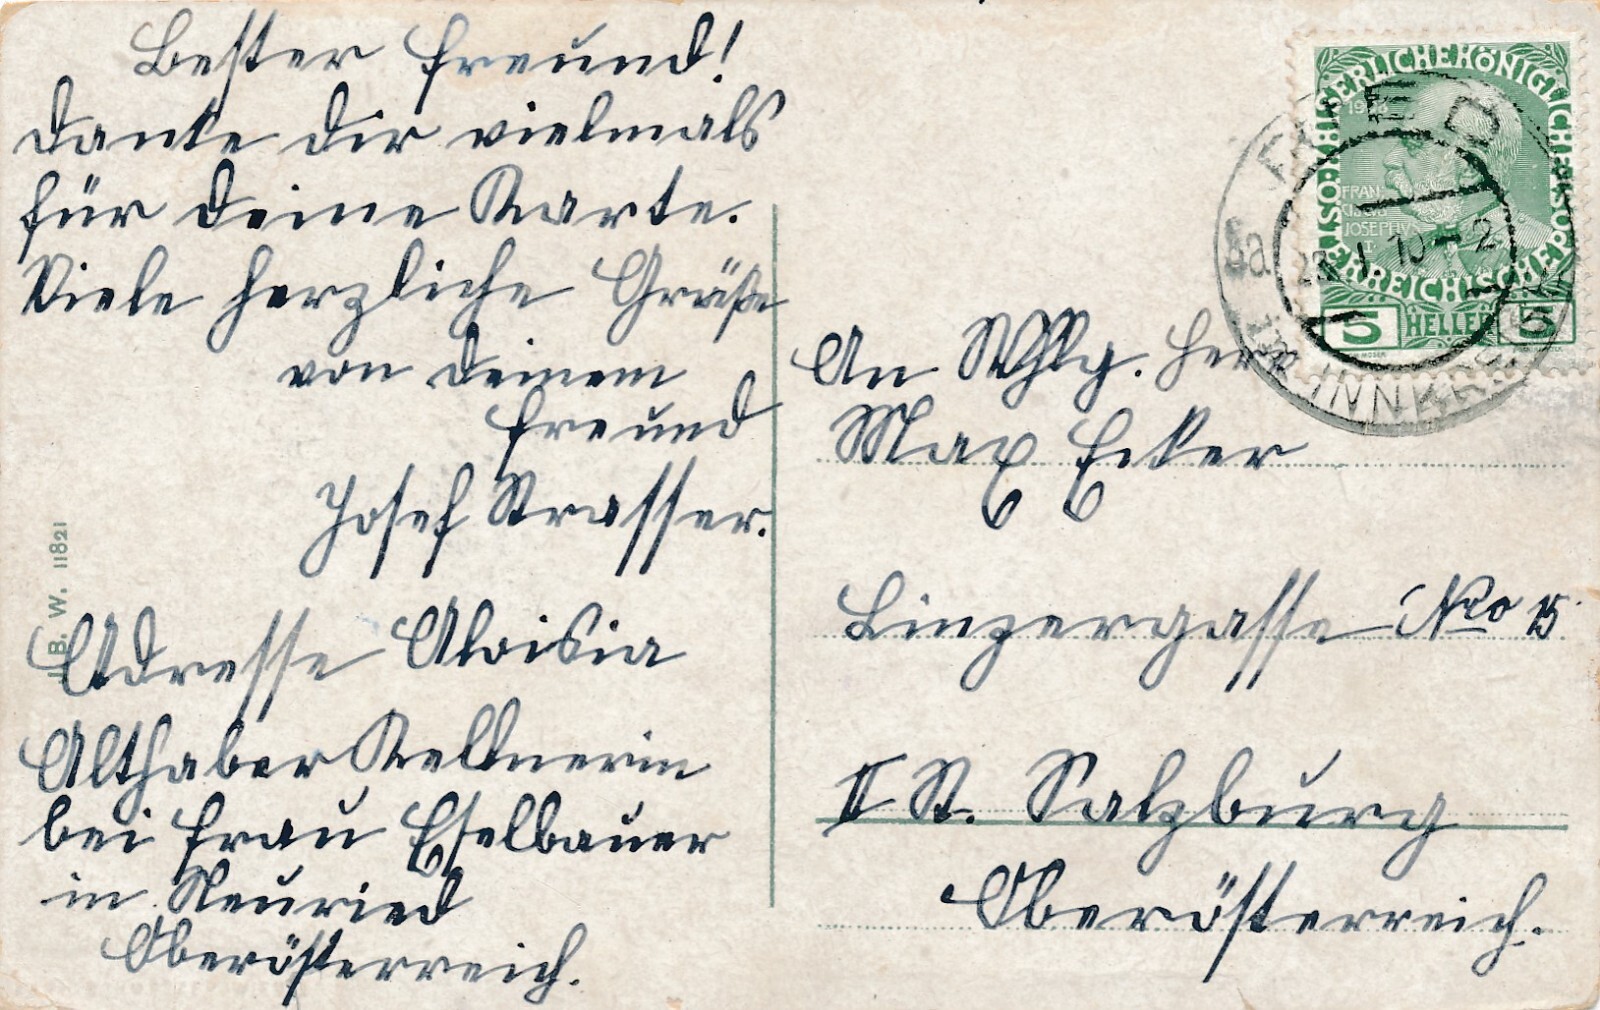 Bester Freund!
Danke dir vielmals
für deine Karte.
Viele herzliche Grüße
von deinem
Freund
Josef Strasser.
Adresse Aloisia
Althaber Kellnerin
bei Frau Eselbauer
in Neuried
Oberösterreich.
J. B. W. 11821
KAISERLICHE KÖNIGLICHE
ÖSTERREICHISCHE POST
FRAN
JOSEPH
5 HELLER 5
RIED
8a
INNKREIS
An Whlg. Herr
Max Ecker
Linzergasse No 15
II St. Salzburg
Oberösterreich.